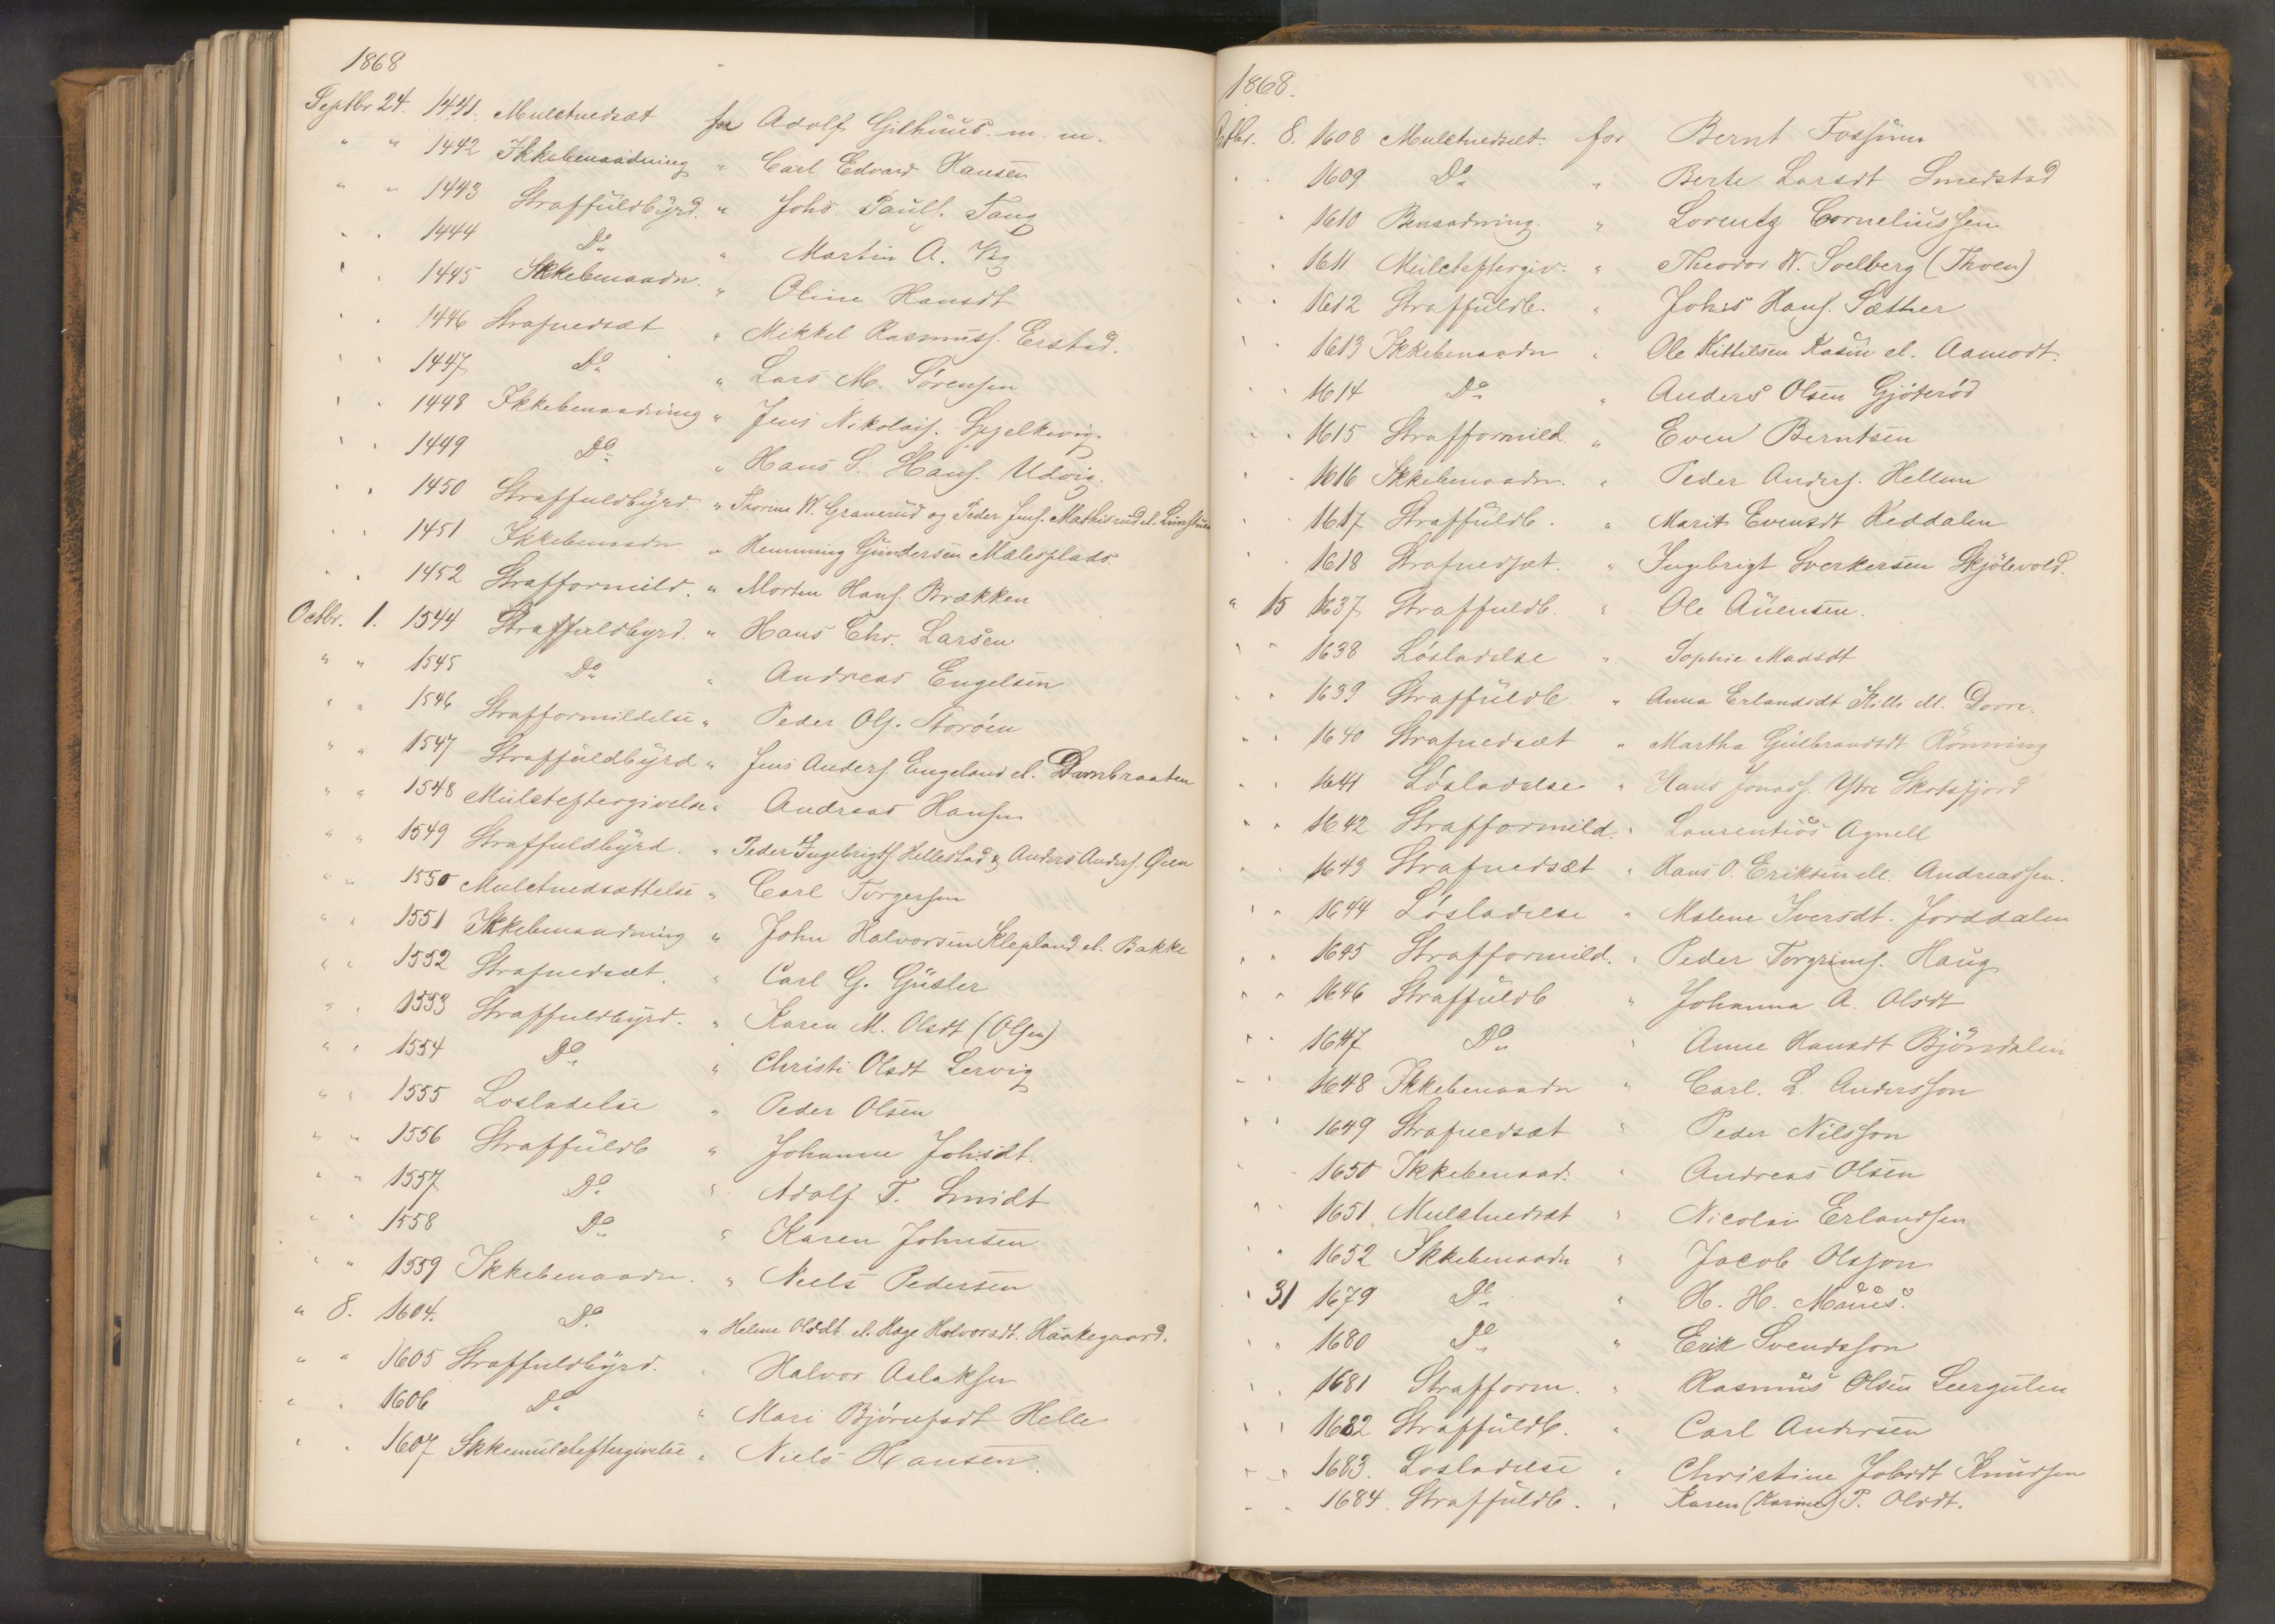 1868
Septbr 24. 1441. Mulctnedsæt for Adolf Gilhuus. m. m.
" " 1442 Ikkebenaadning " Carl Edvard Hansen
" " 1443 Straffuldbyrd. " Johs. Pauls. Tang
" " 1444 Do " Martin A. Vig
" " 1445 Ikkebenaadn. " Oline Hansdt
" " 1446 Strafnedsæt " Mikkel Rasmuss. Erstad.
" " 1447 Do " Lars M. Sörensen
" " 1448 Ikkebenaadning " Jens Nikolais. Spjelkevig.
" " 1449 Do " Hans S. Hans. Udvig.
" " 1450 Straffuldbyrd. " Thorine W. Granerud og Peder Jens. Mathisrud el.
" " 1451 Ikkebenaadn " Hemming Gundersen Mælesplads
" " 1452 Strafformild. " Morten Hans. Brækken
Octbr. 1. 1544 Straffuldbyrd. " Hans Chr. Larsen
" " 1545 Do " Andreas Engelsen
" " 1546 Strafformildelse " Peder Ols. Storöen
" " 1547 Straffuldbyrd " Jens Anders. Engeland el. Dambraaten
" " 1548 Mulcteftergivelse " Andreas Hansen
" " 1549 Straffuldbyrd. " Peder Ingebrigts. Hellestad & Anders Anders. Öien
" " 1550 Mulctnedsættelse " Carl Torgersen
" " 1551 Ikkebenaadning " John Halvorsen Klepland el. Bakke
" " 1552 Strafnedsæt. " Carl G. Gusler
" " 1553 Straffuldbyrd. " Karen M. Olsdt (Olsen)
" " 1554 Do " Christi Olsdt Lervig
" " 1555 Losladelse " Peder Olsen
" " 1556 Straffuldb " Johanne Johsdt.
" " 1557 Do " Adolf T. Smidt
" " 1558 Do " Karen Johnsen
" " 1559 Ikkebenaadn. " Niels Pedersen
" 8. 1604. Do " Helene Olsdt. el. Hæge Halvorsdt. Haakegaard.
" " 1605 Straffuldbyrd. " Halvor Aslaksen
" " 1606 Do " Mari Björnsdt Helle
" " 1607 Ikkemulcteftergivelse " Niels Hansen.
1868.
Octbr. 8. 1608 Mulctnedsæt. for Bernt Fossum
" " 1609 Do " Berte Larsdt Smedstad
" " 1610 Benaadning " Lorentz Corneliussen
" " 1611 Mulcteftergiv. " Theodor W. Soelberg (Thoen)
" " 1612 Straffuldb. " Johs Hans. Sæther
" " 1613 Ikkebenaadn " Ole Kittilsen Kasin el. Aamodt.
" " 1614 Do " Anders Olsen Gjöteröd
" " 1615 Strafformild. " Even Berntsen
" " 1616 Ikkebenaadn. " Peder Anders. Hellum
" " 1617 Straffuldb. " Marit Evensdt Heddalen
" " 1618 Strafnedsæt. " Ingebrigt Sverkersen Skjölevold.
" 15 1637 Straffuldb. " Ole Auensen.
" " 1638 Lösladelse " Sophie Madsdt
" " 1639 Straffuldb. " Anna Erlandsdt Killi ell. Dovre.
" " 1640 Strafnedsæt " Martha Gulbrandsdt Rönning
" " 1641 Lösladelse " Hans Jonass. Ytre Skotsfjord
" " 1642 Strafformild. " Laurentius Agnell
" " 1643 Strafnedsæt " Hans O. Eriksen ell. Andreassen.
" " 1644 Lösladelse " Malene Iversdt. Jorddalen
" " 1645 Strafformild. " Peder Torgrims. Haug
" " 1646 Straffuldb " Johanna A. Olsdt
" " 1647 Do " Anne Hansdt Björndalen
" " 1648 Ikkebenaadn " Carl. L. Andersson
" " 1649 Strafnedsæt " Peder Nilsson
" " 1650 Ikkebenaad. " Andreas Olsen
" " 1651 Mulctnedsæt " Nicolai Erlandsen
" " 1652 Ikkebenaadn " Jacob Olsson
" 31 1679 Do " H. H. Maus.
" " 1680 Do " Erik Svendsson
" " 1681 Strafform. " Rasmus Olsen Leergulen
" " 1682 Straffuldb. " Carl Andersen
" " 1683. Losladelse " Christine Jobsdt Knudsen
" " 1684. Straffuldb. " Karen (Karine) P. Olsdt.